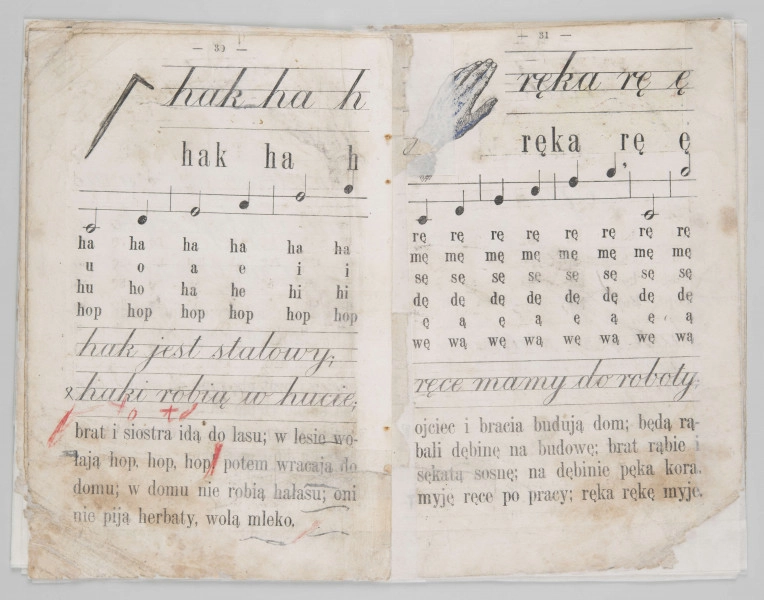 — 30 —
hak ha h
hak ha h
ha ha ha ha ha ha
u o a e i i
hu ho ha he hi hi
hop hop hop hop hop hop
hak jest stalowy;
haki robią w hucie;
brat i siostra idą do lasu; w lesie wo-
łają hop, hop, hop; potem wracają do
domu; w domu nie robią hałasu; oni
nie piją herbaty, wolą mleko.
— 31 —
ręka rę ę
ręka rę ę
rę rę rę rę rę rę rę rę
mę mę mę mę mę mę mę mę
sę sę sę sę sę sę sę sę
dę dę dę dę dę dę dę dę
ę ą ę ą ę ą ę ą
wę wą wę wą wę wą wę wą
ręce mamy do roboty;
ojciec i bracia budują dom; będą rą-
bali dębinę na budowę; brat rąbie i
sękatą sosnę; na dębinie pęka kora.
myję ręce po pracy; ręka rękę myje.